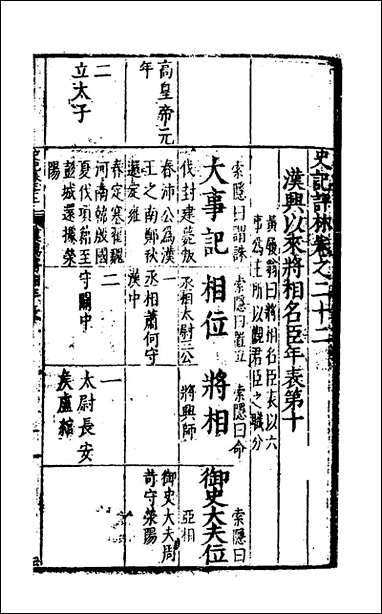 史記評林卷之二十二
漢興以來將相名臣年表第十
黃履翁曰將相名臣表以六
事為主所以觀君臣之職分
索隱曰謂誅
伐封建薨叛
大事記
索隱曰置立
丞相太尉三公
相位
索隱曰命
將興師
將相
索隱曰
亞相
御史大夫位
高皇帝元
年
春沛公為漢
王之南鄭秋
還定雍
一
丞相蕭何守
漢中
御史大夫周
苛守滎陽
二
立太子
春定塞翟魏
河南韓殷國
夏伐項籍至
彭城還據滎
陽
二
守關中
一
太尉長安
侯盧綰